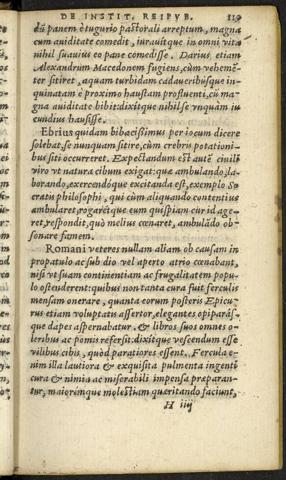 DE INSTIT. REIPVB. 119
dū panem è tugurio pastorali arreptum, magna
cum auiditate comedit, iurauitque in omni vita
nihil suauius eo pane comedisse. Darius etiam
Alexandrum Macedonem fugiens, cùm vehemē-
ter sitiret, aquam turbidam cadaueribusque in-
quinatam è proximo haustam profluenti, cū ma-
gna auiditate bibit: dixitque nihil se vnquàm iu
cundius hausisse.
Ebrius quidam bibacissimus per iocum dicere
solebat, se nunquam sitire, cùm crebris potationi-
bus siti occurreret. Expectandum est autē ciuili
viro vt natura cibum exigat: quæ ambulando, la-
borando, exercendóque excitanda est, exemplo So
cratis philosophi, qui cùm aliquando contentius
ambularet, rogarétque eum quispiam cur id age-
ret, respondit, quò melius cœnaret, ambulādo ob-
sonare famem.
Romani veteres nullam aliam ob causam in
propatulo ac sub dio vel aperto atrio cœnabant,
nisi vt suam continentiam ac frugalitatem popu-
lo ostenderent: quibus non tanta cura fuit ferculis
mensam onerare, quanta eorum posteris Epicu-
rus etiam voluptatis assertor, elegantes opiparás-
que dapes aspernabatur. & libros suos omnes o-
leribus ac pomis refersit: dixitque vescendum esse
vilibus cibis, quòd paratiores essent. Fercula e-
nim illa lautiora & exquisita pulmenta ingenti
cura & nimia ac miserabili impensa preparan-
tur, maiorémque molestiam quæritando faciunt,
H iiij